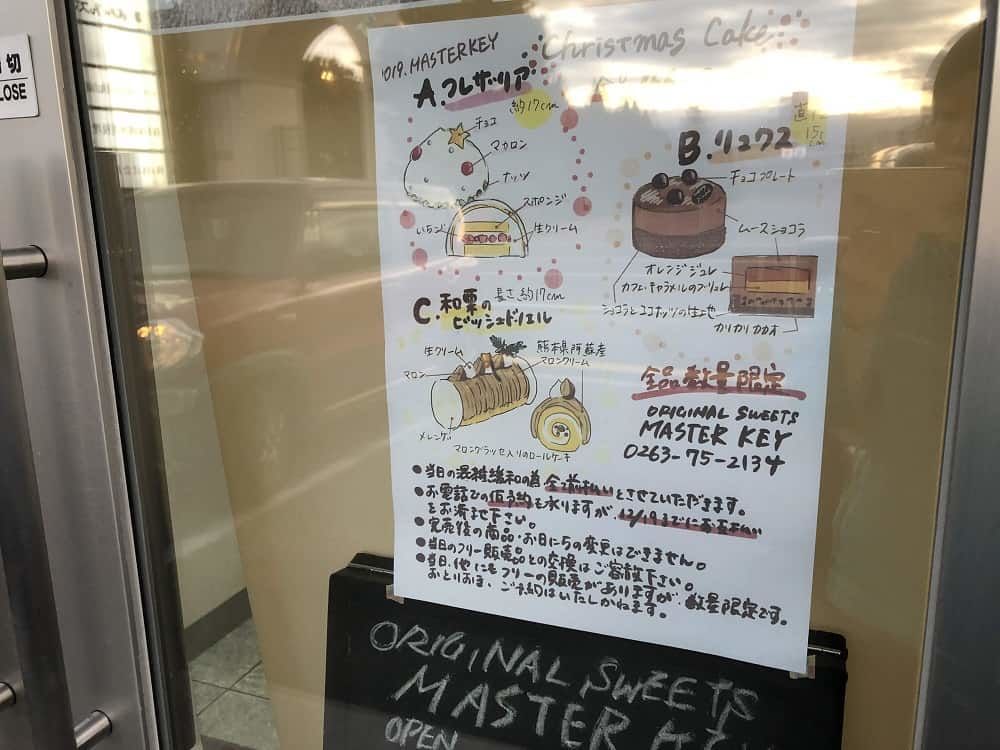 切
LOSE
019. MASTERKEY
Christmas Cake
A. フレサッリア
約17cm
チョコ
マカロン
ナッツ
スポンジ
いちご
生クリーム
B. リュクス
直
15
cm
チョコプレート
ムースショコラ
オレンジジュレ
カフェ・キャラメルのブリュレ
ショコラとココナッツの生地
カリカリカカオ
C. 和栗の
ビッシュドノエル
長さ約17cm
生クリーム
熊本県阿蘇産
マロンクリーム
マロン
メレンゲ
マロングラッセ入りのロールケーキ
全品数量限定
ORIGINAL SWEETS
MASTER KEY
0263-75-2134
●当日の混雑緩和の為全て前払いとさせていただきます。
●お電話での仮予約も承りますが、12/19までにお支払い
をお済ませ下さい。
●完売後の商品・お日にちの変更はできません。
●当日のフリー販売品との交換はご容赦下さい。
●当日、他にもフリーの販売がありますが、数量限定です。
おとりおき、ご予約はいたしかねます。
ORIGINAL SWEETS
MASTER KEY
OPEN